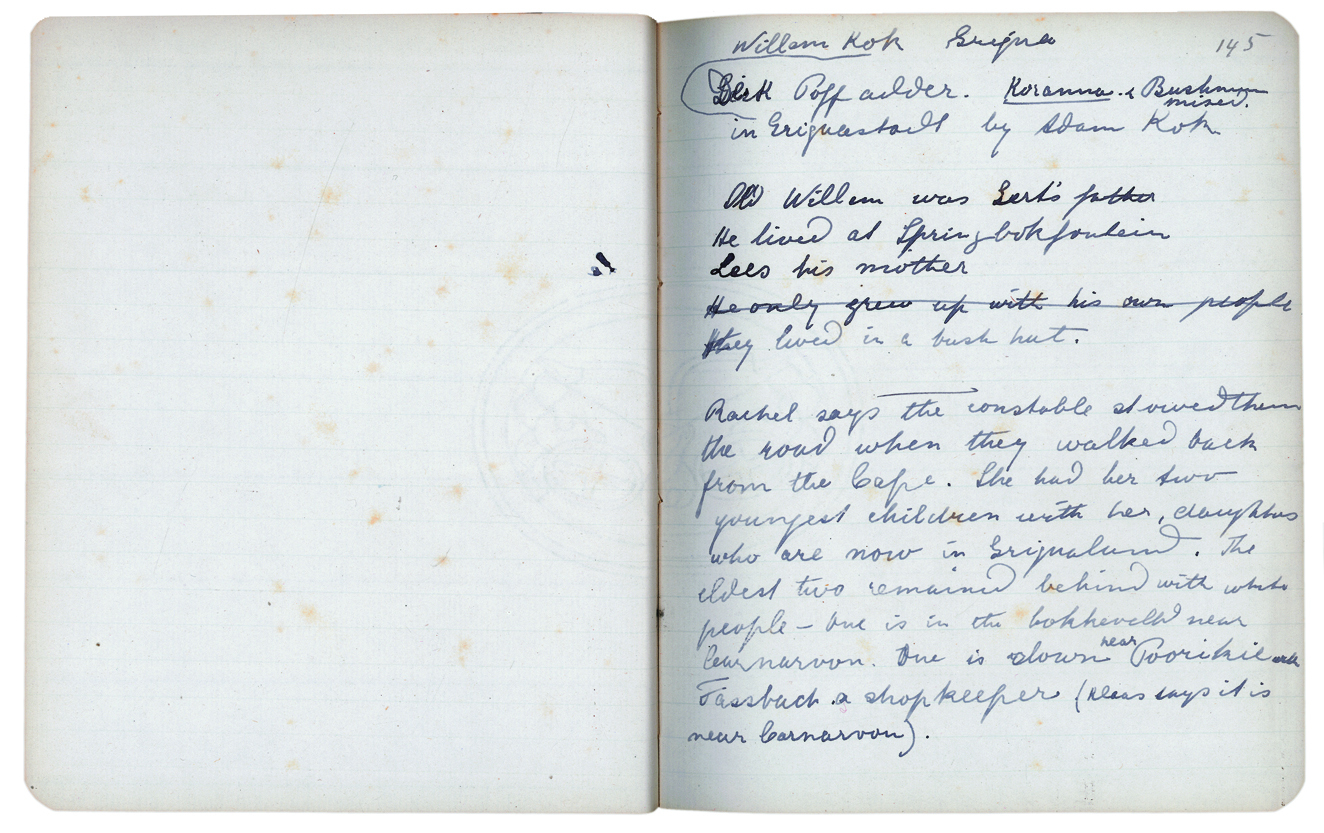 Willem Kok Griqua 145
Dirk Poffadder. Koranna & Bushman
mixed.
in Griquastadt by Adam Kok
Old Willem was Gert's father
He lived at Springbokfontein
Lees his mother
He only grew up with his own people
they lived in a bush hut.
Rachel says the constable showed them
the road when they walked back
from the Cape. She had her two
youngest children with her, daughters
who are now in Griqualand. The
eldest two remained behind with white
people – One is in the bokkeveld near
Carnarvon. One is down near Poorikie with
Tassbach a shopkeeper (Klaas says it is
near Carnarvon).